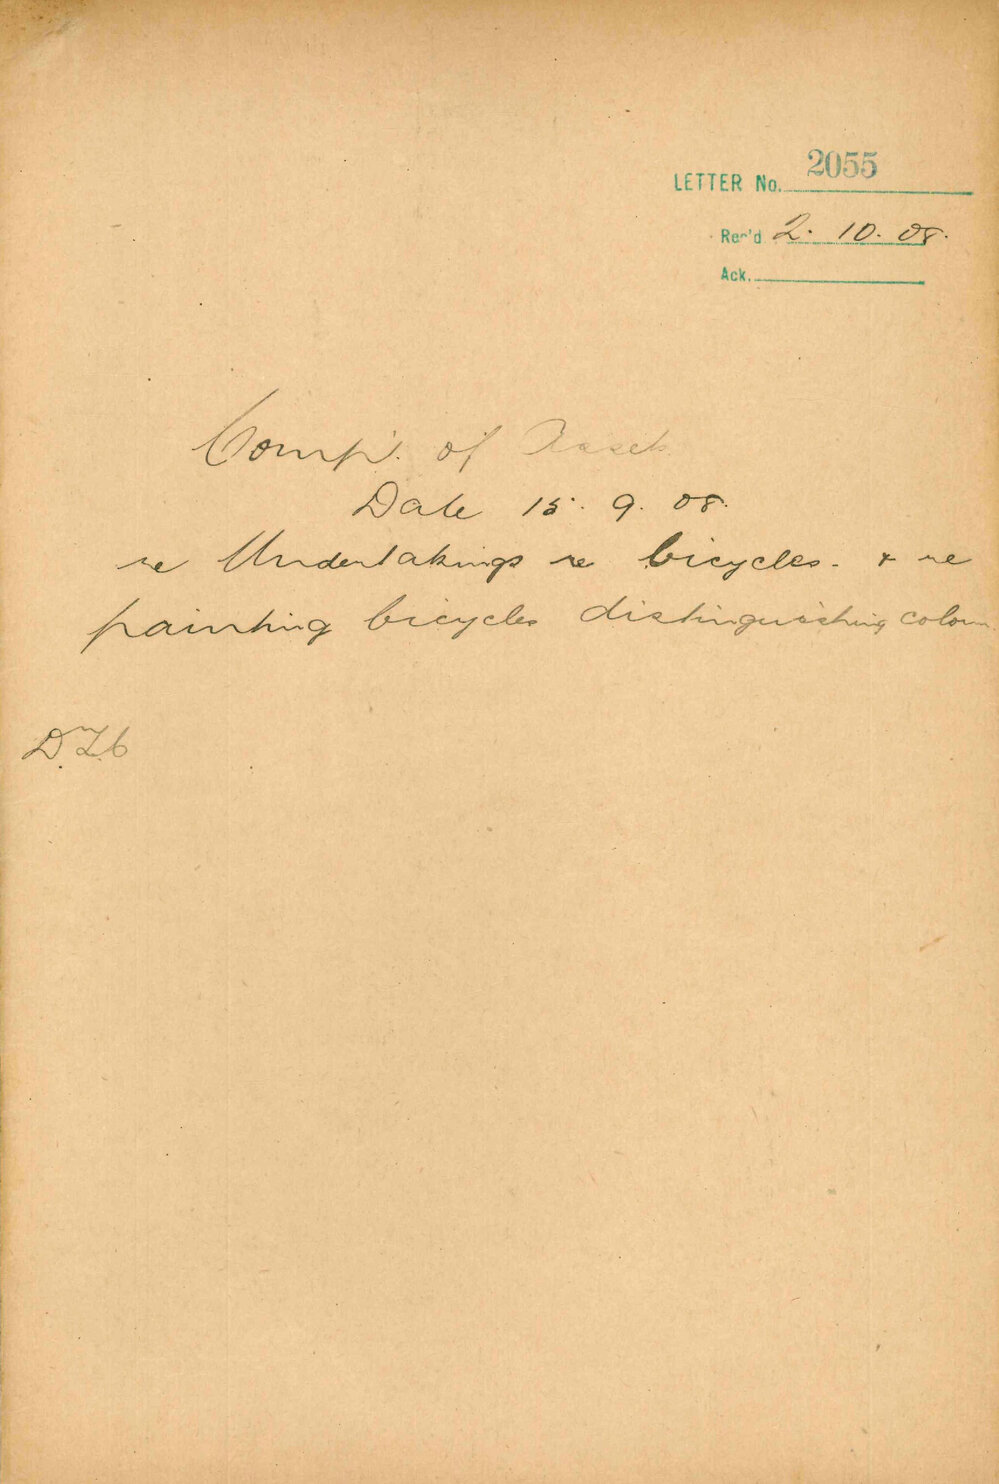 LETTER No. 2055
Rec'd 2. 10. 08.
Ack.
Comp'. of
Date 15. 9. 08.
re Undertakings re bicycles. & re
painting bicycles distinguishing colour